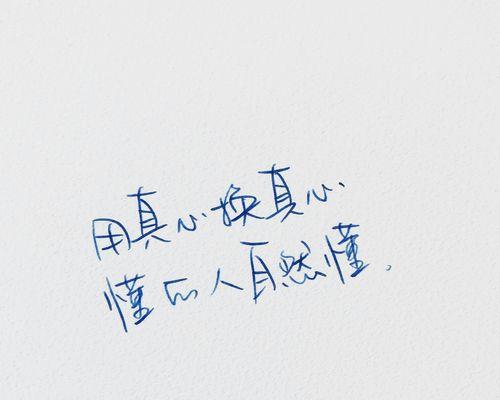 用真心换真心
懂的人自然懂.